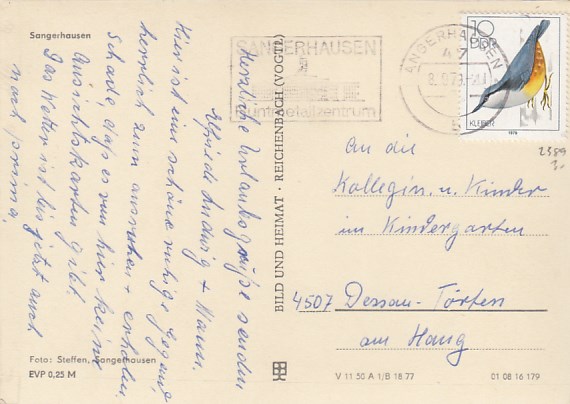 Sangerhausen
Herzliche Urlaubsgrüße senden
Elfriede Ludwig + Mann.
Hier ist eine schöne ruhige Gegend,
herrlich zum ausruhen + erholen.
Schade daß es von hier keine
Ansichtskarten gibt.
Das Wetter ist bis jetzt auch
noch prima.
Foto: Steffen, Sangerhausen
EVP 0,25 M
BILD UND HEIMAT · REICHENBACH (VOGTL)
SANGERHAUSEN
Buntmetallzentrum
SANGERHAUSEN
10
DDR
KLEIBER
1979
2389
An die
Kollegin. u. Kinder
im Kindergarten
4507 Dessau-Törten
am Hang
V 11 50 A 1/B 18 77
01 08 16 179